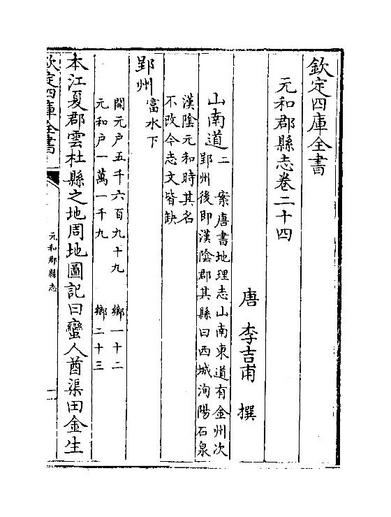 欽定四庫全書
元和郡縣志卷二十四
唐 李吉甫 撰
山南道二 案唐書地理志山南東道有金州次
郢州後即漢陰郡其縣曰西城洵陽石泉
漢陰元和時其名
不改今志文皆缺
郢州 富水下
開元户五千六百九十九 鄉一十二
元和户一萬一千九 鄉二十三
本江夏郡雲杜縣之地周地圖記曰蠻人酋渠田金生
欽定四庫全書
元和郡縣志
一